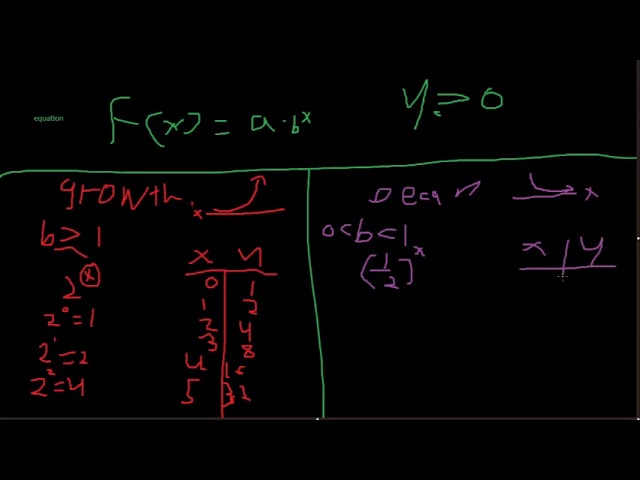 y => 0
equation
F(x) = a·b^x
growth
x
Decay
x
b > 1
0<b<1
x y
x y
2^x
(1/2)^x
0 1
1 2
2^0=1
2 4
3 8
2^1=2
4 16
2^2=4
5 32